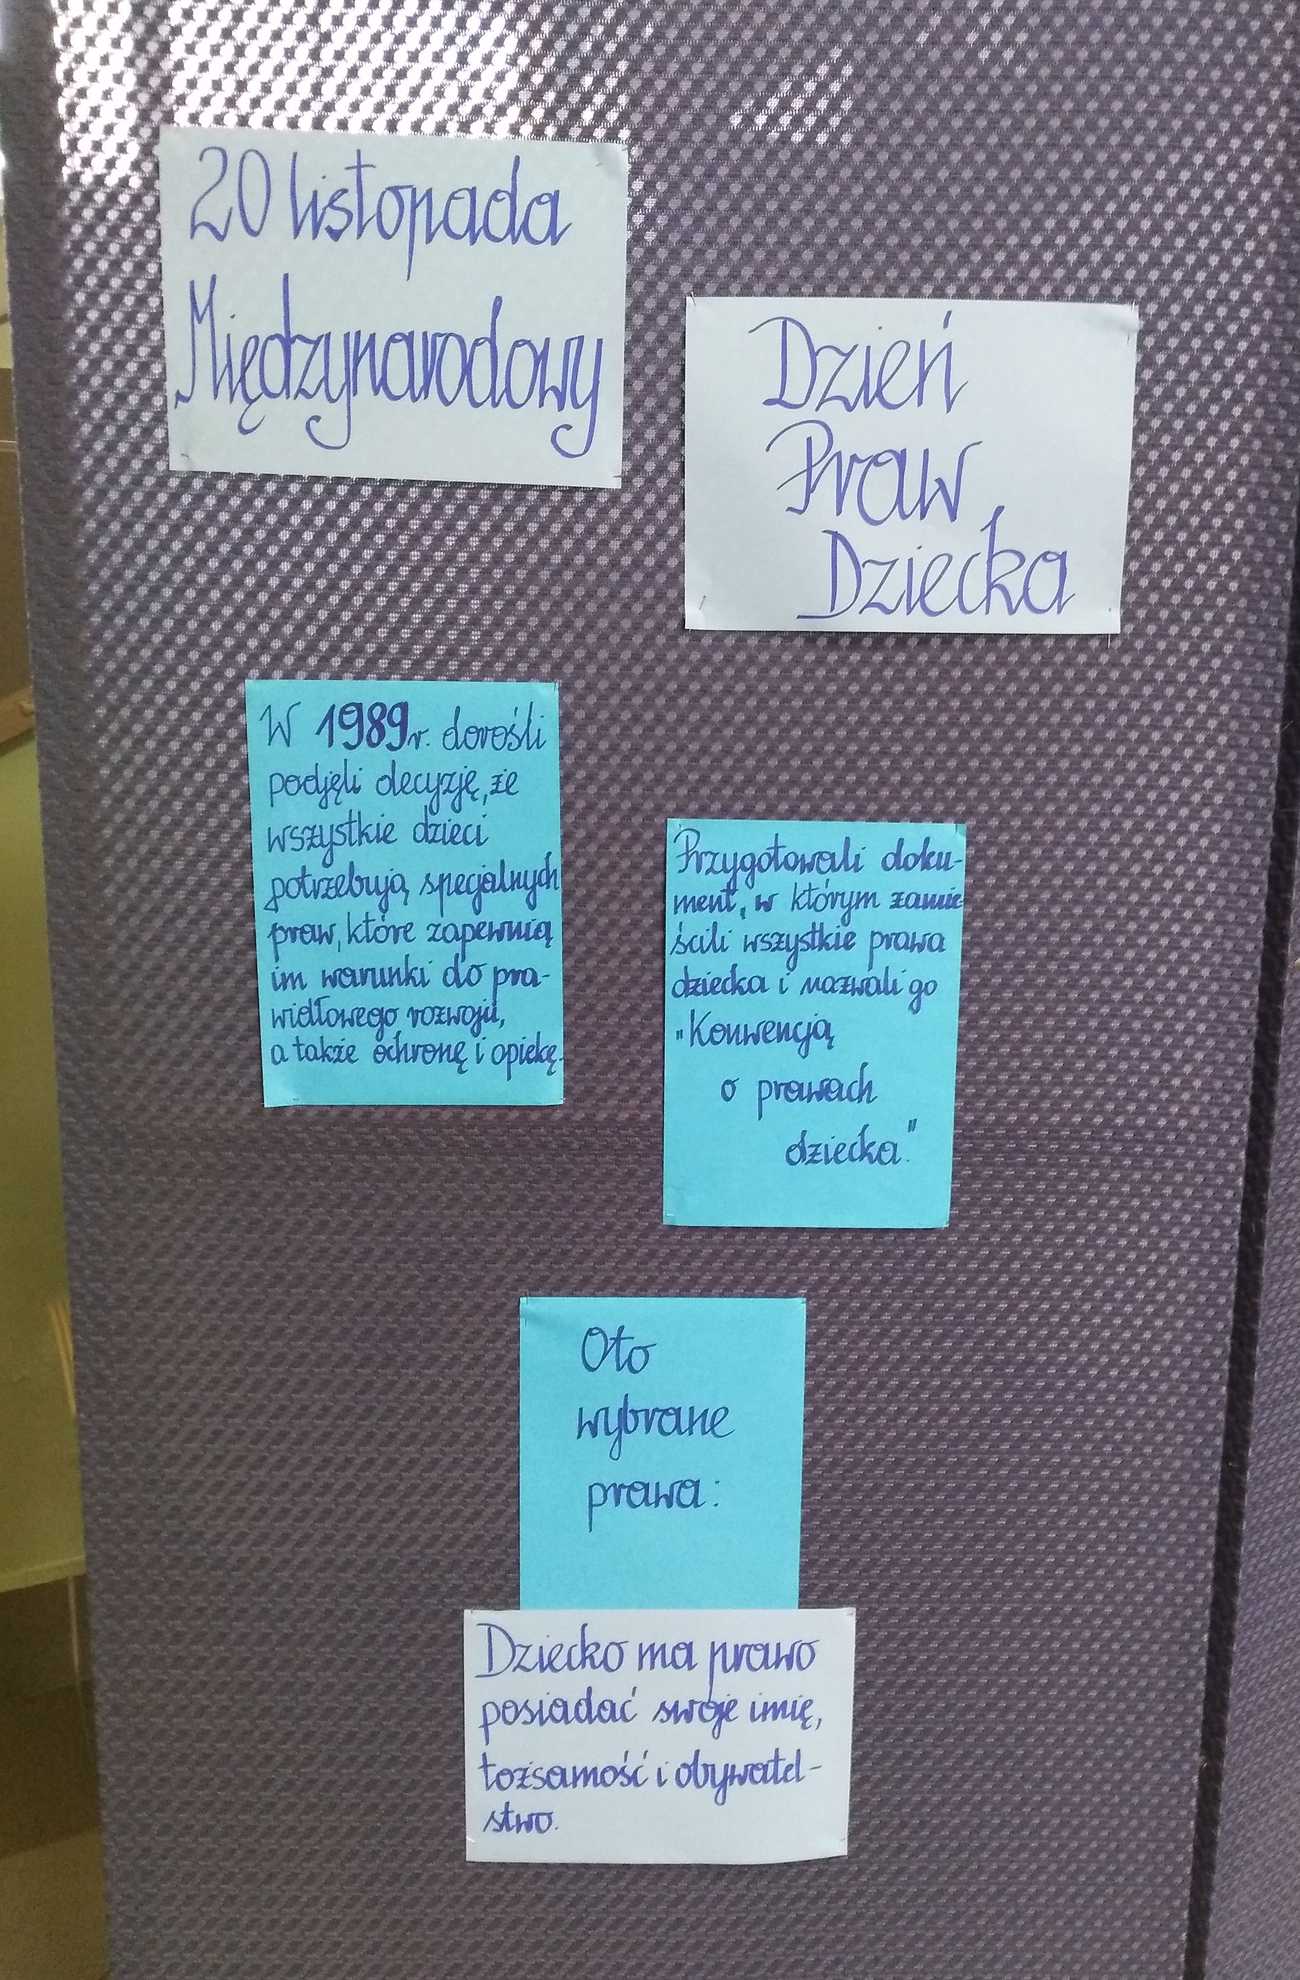 20 listopada
Międzynarodowy
Dzień
Praw
Dziecka
W 1989r. dorośli
podjęli decyzję, że
wszystkie dzieci
potrzebują specjalnych
praw, które zapewnią
im warunki do pra-
widłowego rozwoju,
a także ochronę i opiekę.
Przygotowali doku-
ment, w którym zamie-
ścili wszystkie prawa
dziecka i nazwali go
"Konwencją
o prawach
dziecka."
Oto
wybrane
prawa:
Dziecko ma prawo
posiadać swoje imię,
tożsamość i obywatel-
stwo.